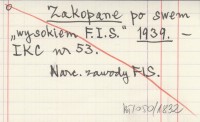 Zakopane po swem
„wysokiem F.I.S." 1939. –
IKC nr 53.
Narc. zawody FIS.